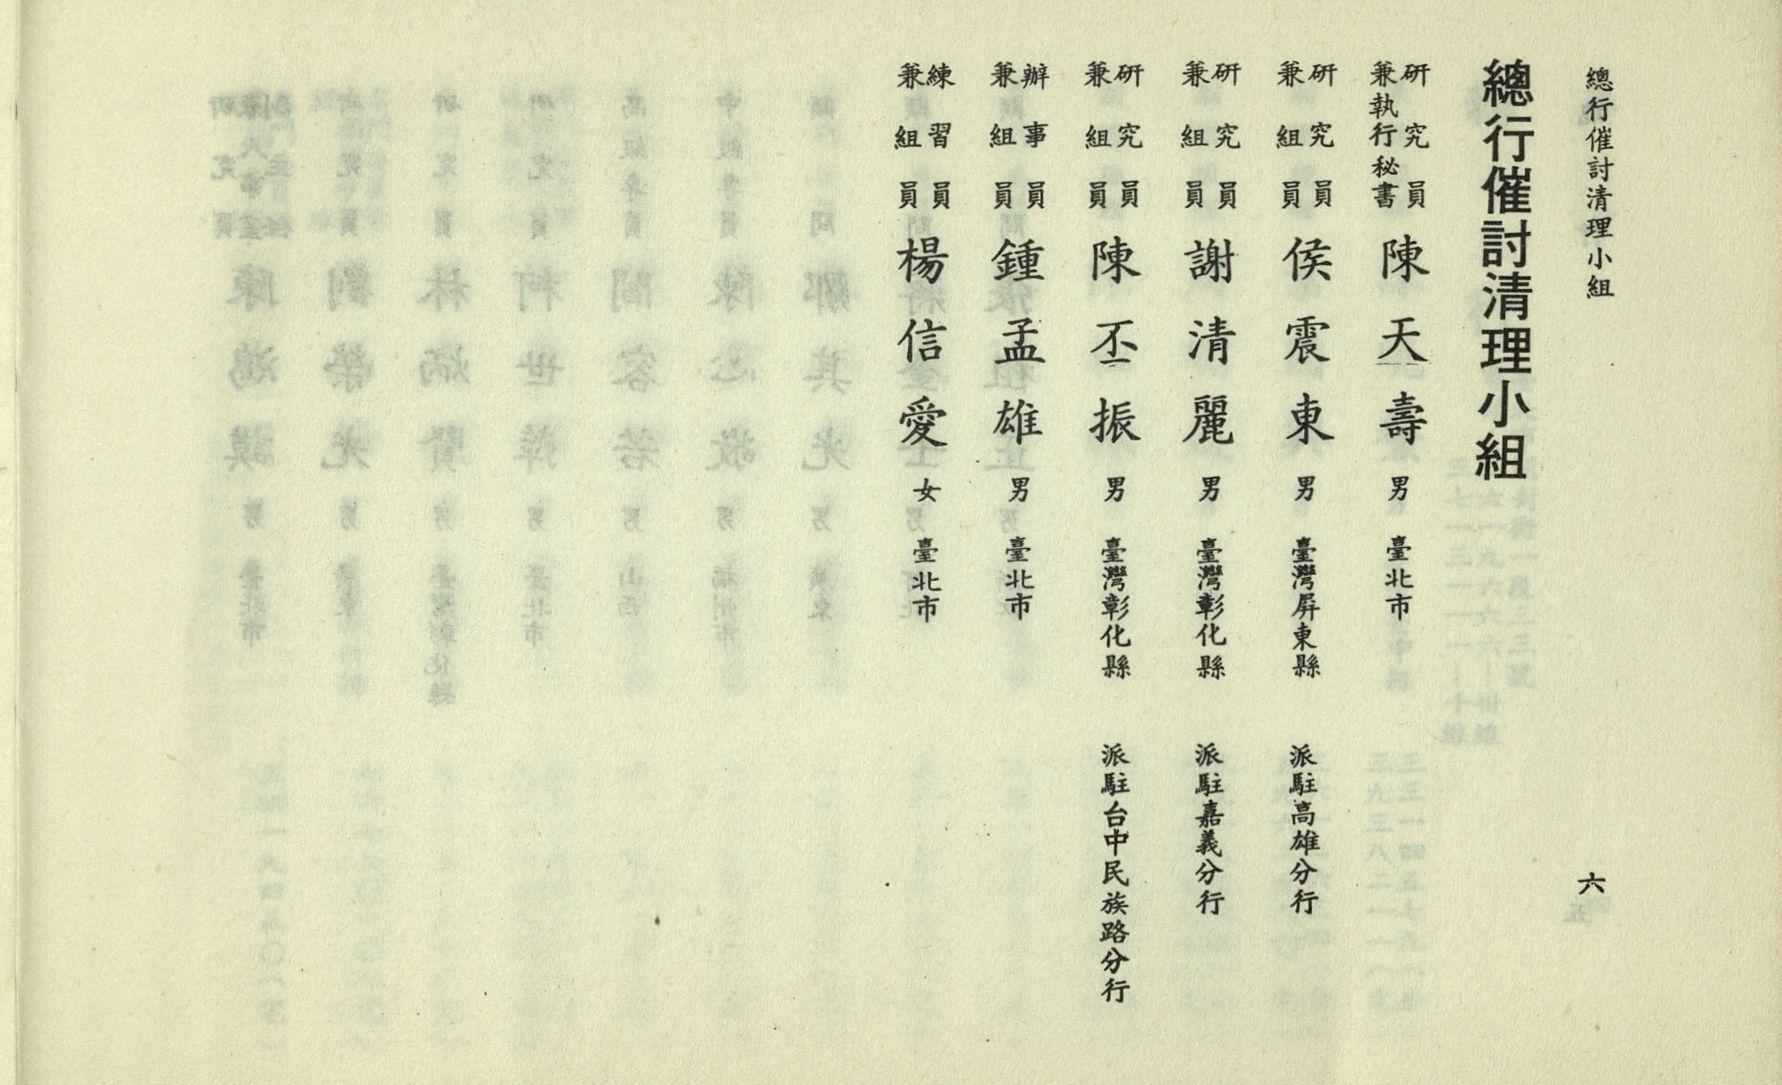 總行催討清理小組
六
總行催討清理小組
研究員兼執行秘書 陳天壽 男 臺北市
研究員兼組員 侯震東 男 臺灣屏東縣 派駐高雄分行
研究員兼組員 謝清麗 男 臺灣彰化縣 派駐嘉義分行
研究員兼組員 陳丕振 男 臺灣彰化縣 派駐台中民族路分行
辦事員兼組員 鍾孟雄 男 臺北市
練習員兼組員 楊信愛 女 臺北市